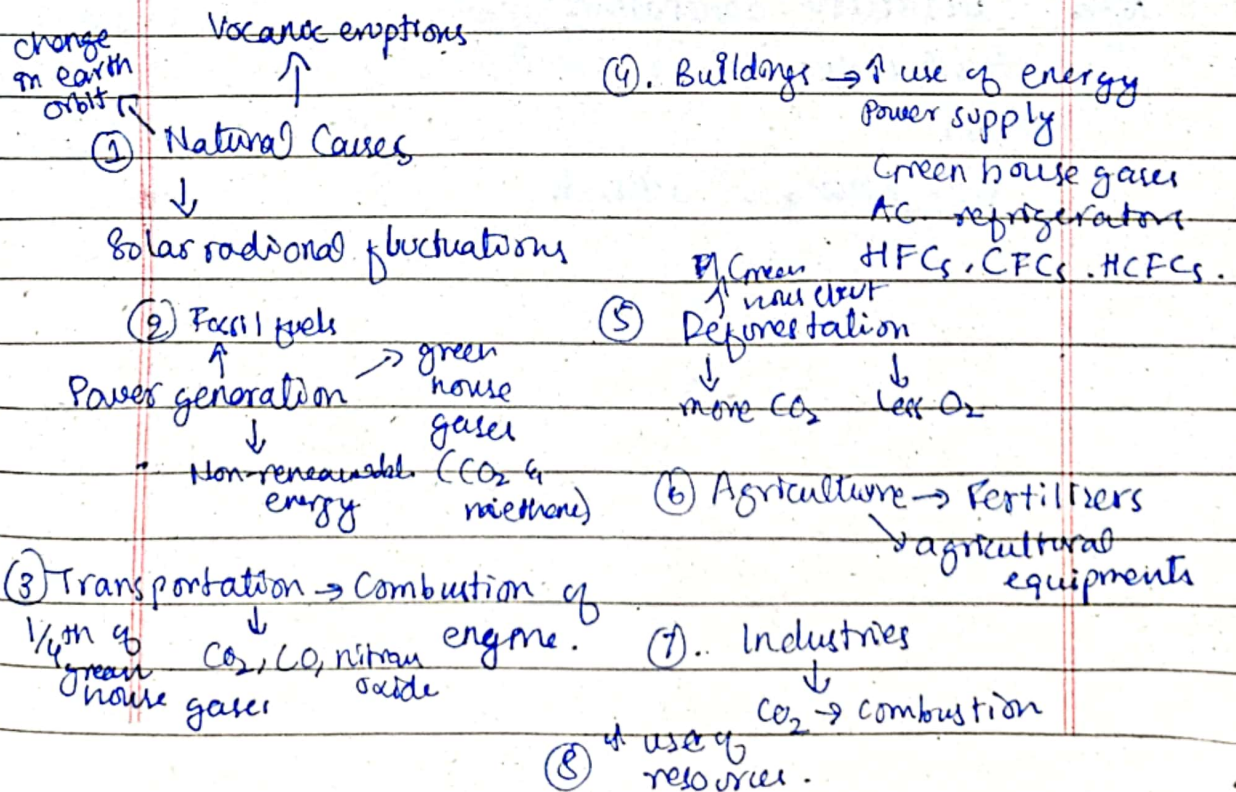 change
in earth
orbit
Vocanoc eruptions
↑
① Natural Causes
↓
Solar radional fluctuations
② Fossil fuels
↑
Power generation → green
house
gases
(CO2 &
methane)
↓
Non-renewable
energy
③ Transportation → Combustion of
engine.
1/4th of
green
house gases
↓
CO2, CO, nitrous
oxide
④. Buildings → ↑ use of energy
Power supply
Green house gases
AC refrigerators
HFCs, CFCs, HCFCs.
Green
↑
⑤ Deforestation
↓ ↓
more CO2 less O2
⑥ Agriculture → Fertilizers
↘ agricultural
equipments
⑦. Industries
↓
CO2 → combustion
⑧ use of
resources.